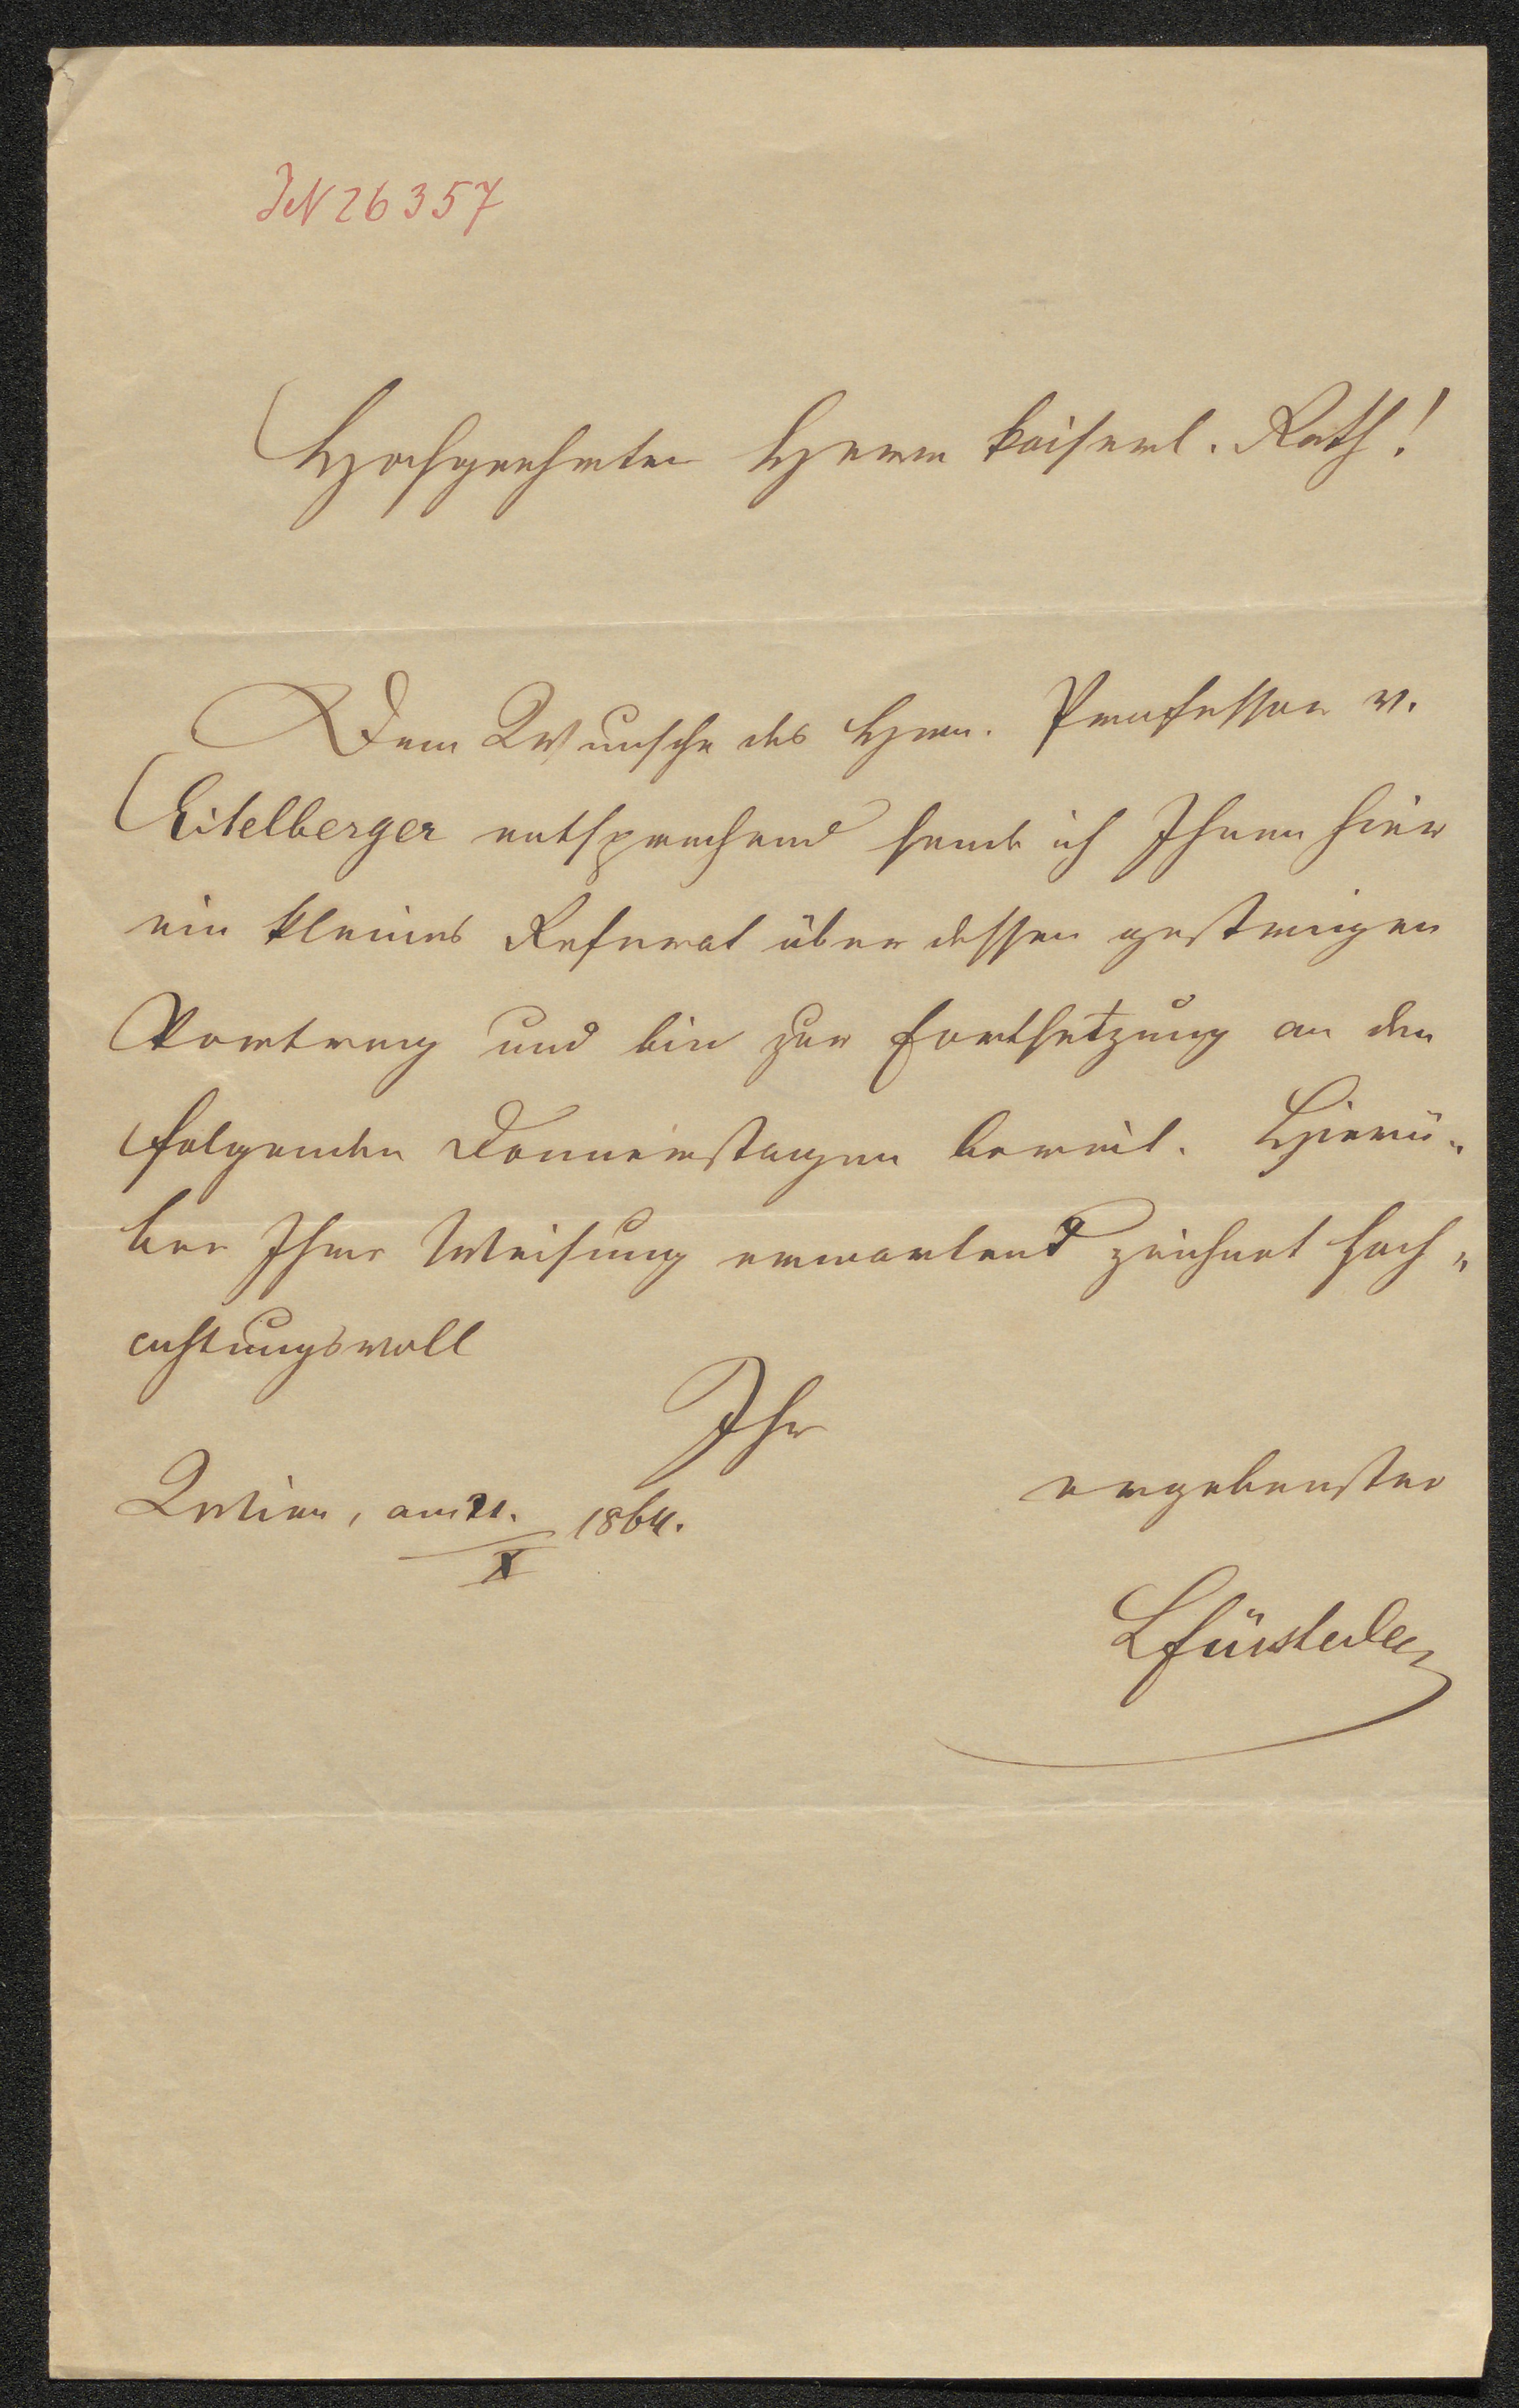 IN 26357
Hochgeehrter Herr kaiserl. Rath!
Dem Wunsche des Hrn. Professor v.
Eitelberger entsprechend sende ich Ihnen hier
ein kleines Referat über dessen gestrigen
Vortrag und bin zur Fortsetzung an den
folgenden Donnerstagen bereit. Hierü„
ber Ihrer Weisung erwartend zeichnet hoch„
achtungsvoll
Ihr
ergebenster
Wien, am 21. 1864.
X